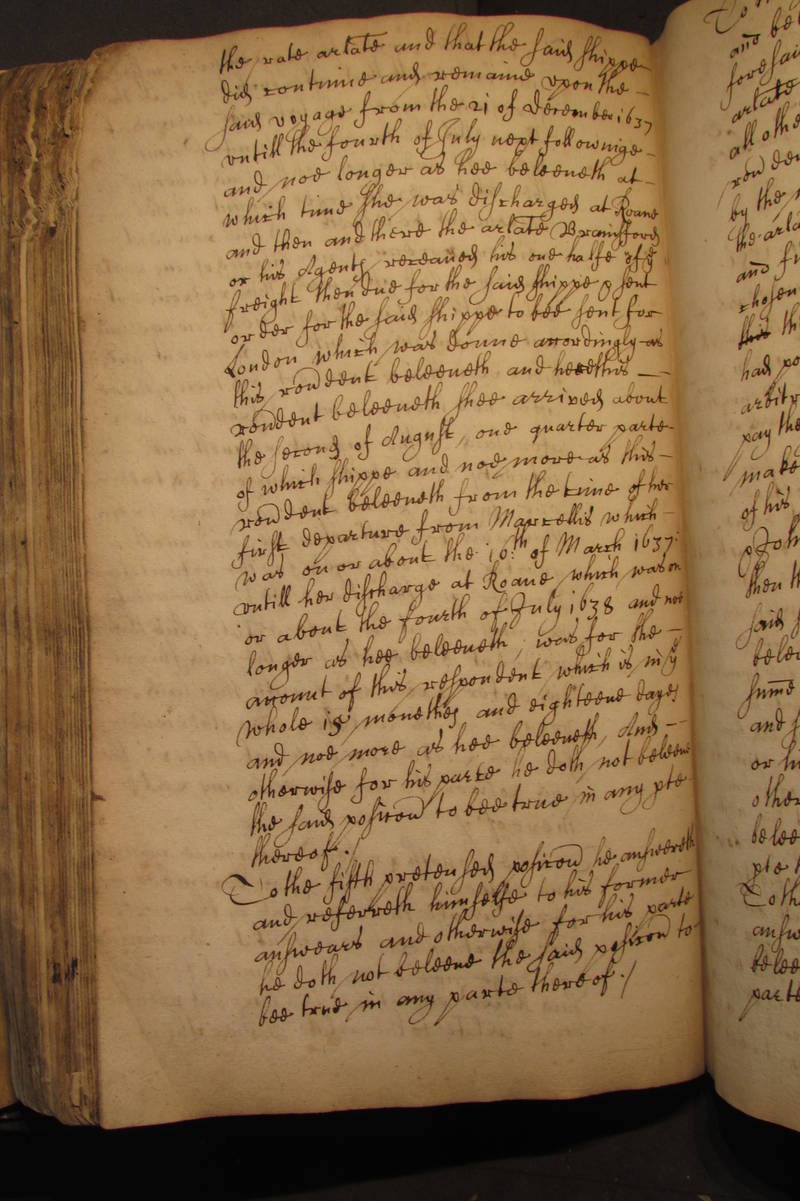 the rate arlate and that the said shippe
did continue and remaine vpon the
said voyage from the 21 of december 1637
vntill the fourth of July next followinge
and noe longer as hee beleeueth at
which time she was discharged at Roane
and then and there the arlate Bramfford
or his Agents receaued his one halfe of ye
freight then due for the said shippe & sent
order for the said shippe to bee sent for
London which was donne accordingly as
this rondent beleeueth and hee this
rondent beleeueth shee arrived about
the second of August, one quarter parte
of which shippe and noe more as this
rondent beleeueth from the time of her
first departure from Marcellis which
was on or about the 10th of March 1637
vntill her discharge at Roane which was on
or about the fourth of July 1638 and not
longer as hee beleeueth, was for the
account of this respondent which is in ye
whole 15 monethes and eighteene dayes
and noe more as hee beleeueth, And
otherwise for his parte he doth not beleeue
the said posicon to bee true in any pte
thereof ./
To the fifth pretensed posicon he answereth
and referreth himselfe to his former
answears and otherwise for his parte
he doth not beleeue the said posicon to
bee true in any parte thereof ./
and be
foresai
arlate
all othe
by the
the arla
and
chosen
this th
had po
arbitr
pay the
make
of his
then th
said
belee
summe
and
or hi
other
belee
pte
To th
answ
belee
parte